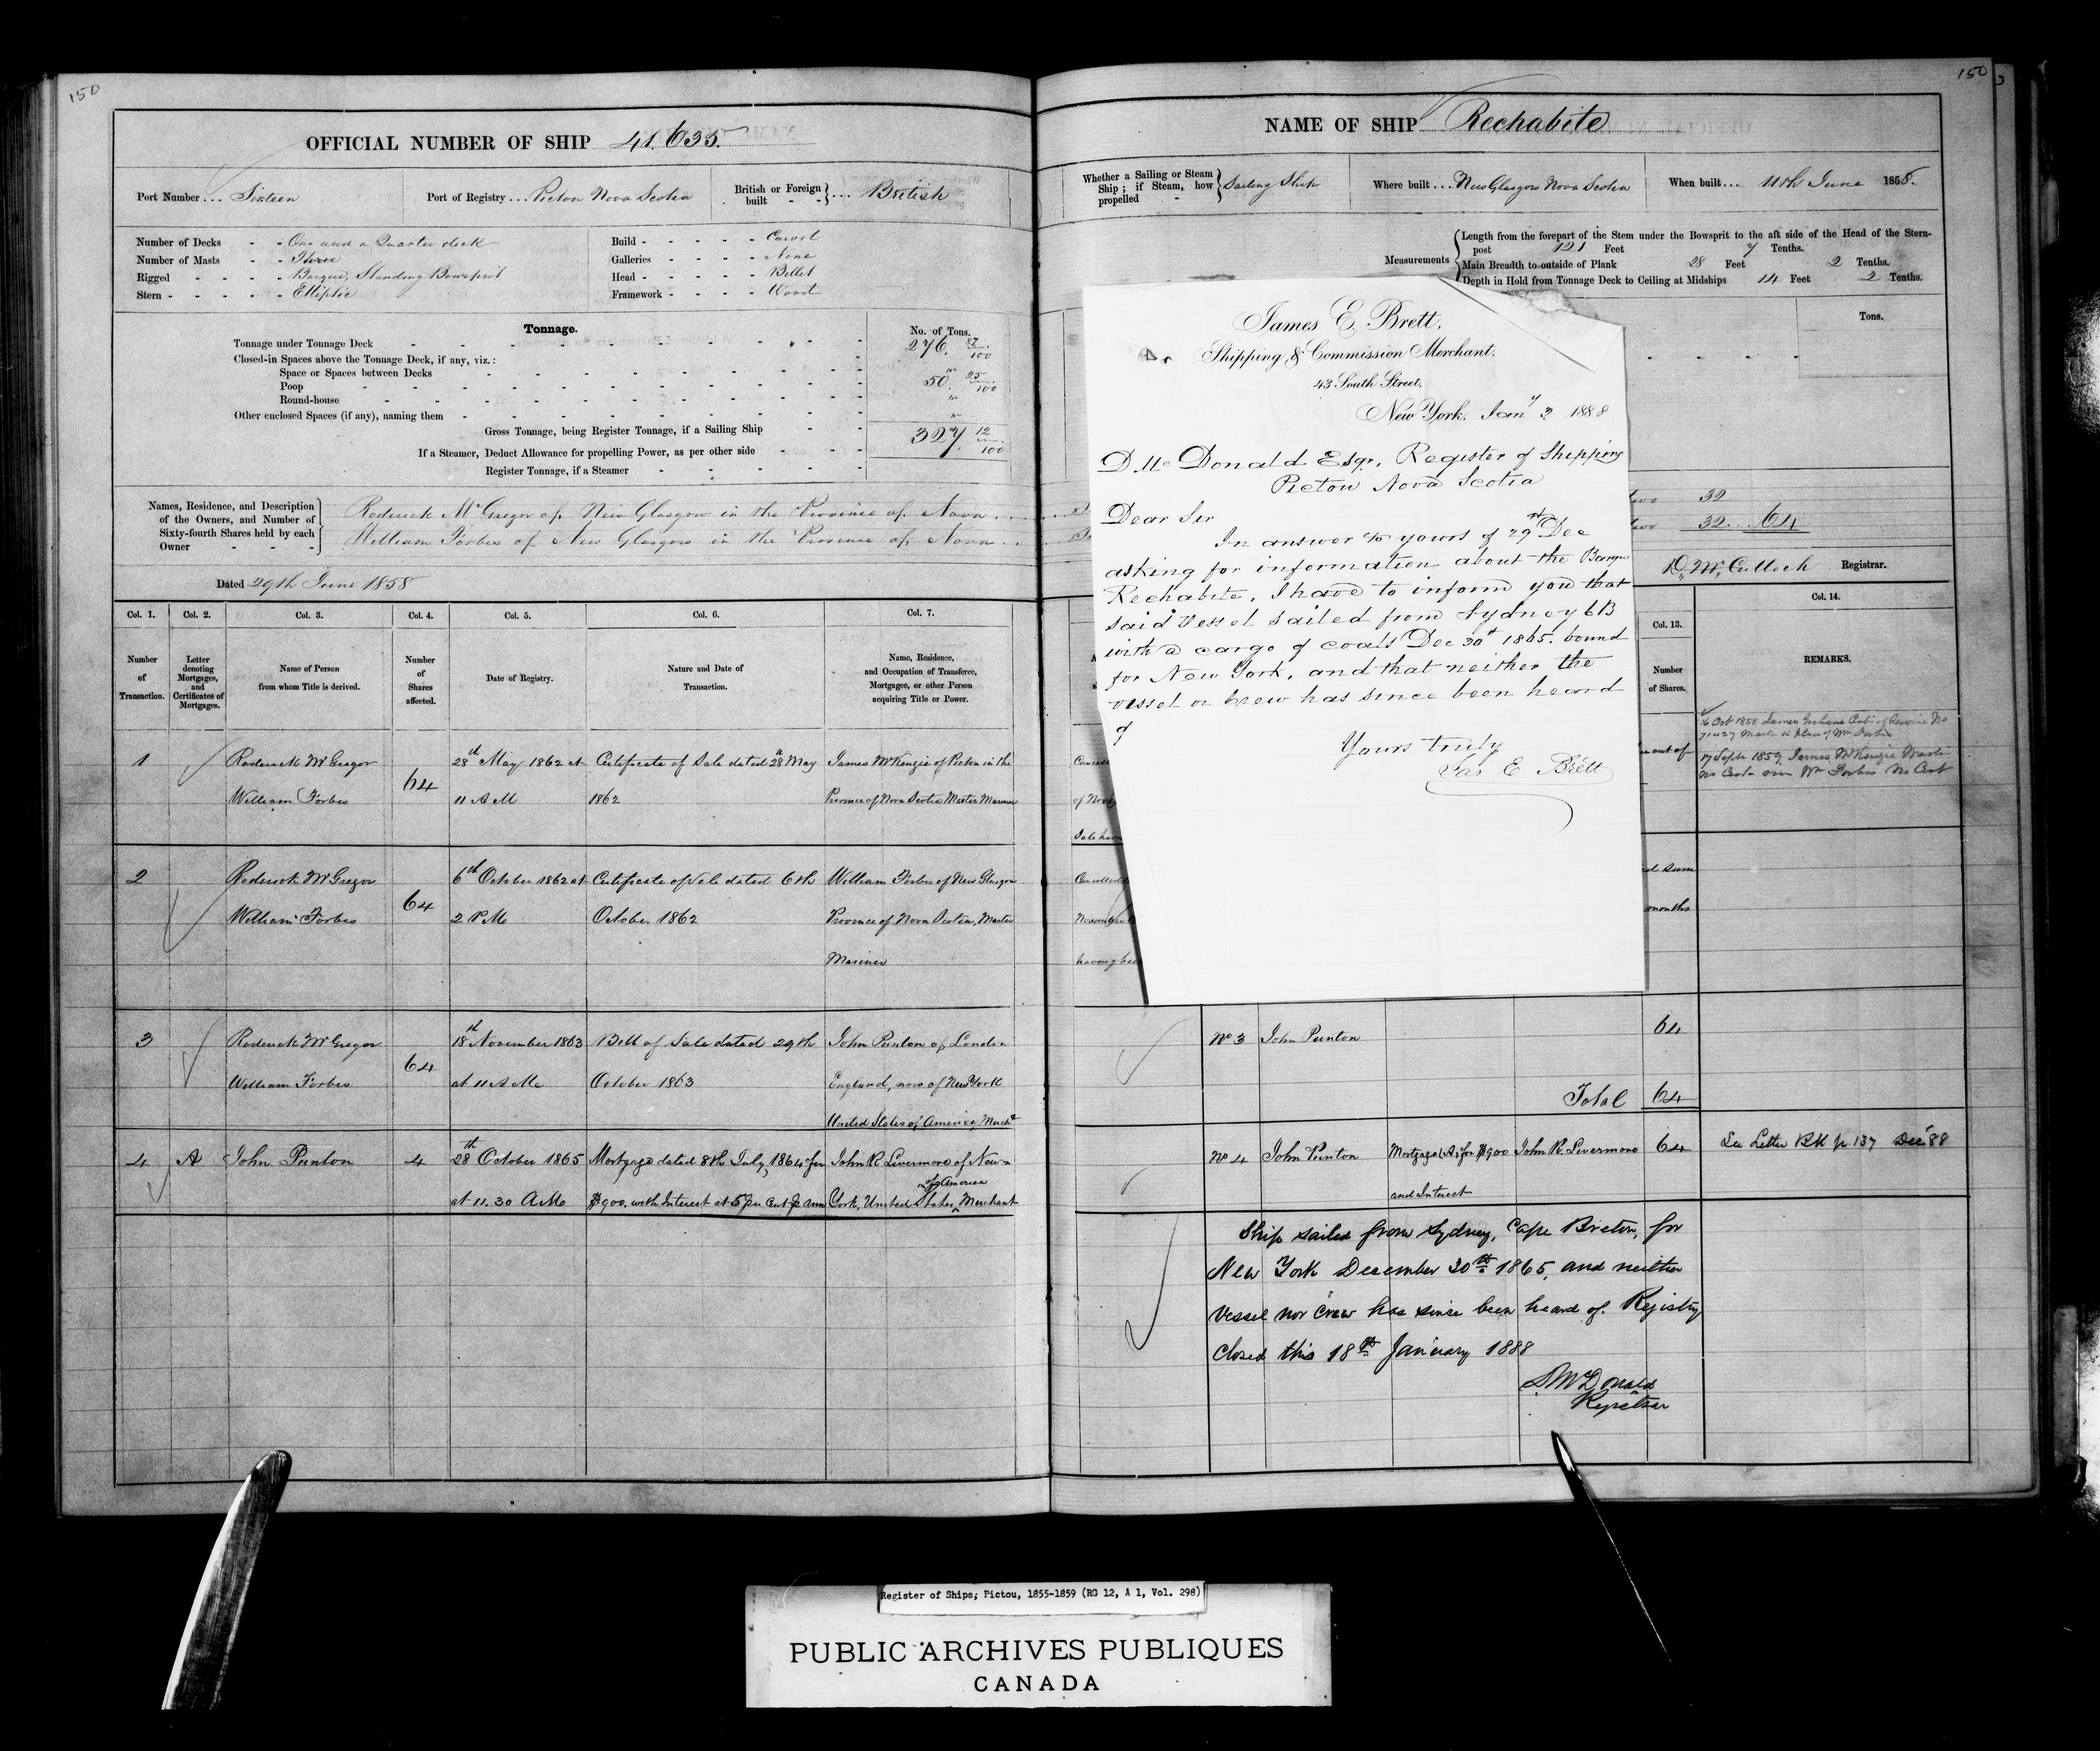 150
OFFICIAL NUMBER OF SHIP 41.635.
Port Number ... Sixteen
Port of Registry ... Pictou Nova Scotia
British or Foreign built - - } ... British
Number of Decks - - One and a Quarter deck
Number of Masts - - Three
Rigged - - - - Barque, Standing Bowsprit
Stern - - - - - Elliptic
Build - - - - - Carvel
Galleries - - - - None
Head - - - - - Billet
Framework - - - - Wood
Tonnage.
No. of Tons.
Tonnage under Tonnage Deck 276. 87/100
Closed-in Spaces above the Tonnage Deck, if any, viz.:
Space or Spaces between Decks "
Poop 50. 25/100
Round-house "
Other enclosed Spaces (if any), naming them "
Gross Tonnage, being Register Tonnage, if a Sailing Ship 327. 12/100
If a Steamer, Deduct Allowance for propelling Power, as per other side
Register Tonnage, if a Steamer
Names, Residence, and Description
of the Owners, and Number of
Sixty-fourth Shares held by each
Owner
Roderick McGregor of New Glasgow in the Province of Nova
William Forbes of New Glasgow in the Province of Nova
Dated 29th June 1858
Col. 1. Col. 2. Col. 3. Col. 4. Col. 5. Col. 6. Col. 7.
Number of Transaction.
Letter denoting Mortgages, and Certificates of Mortgages.
Name of Person from whom Title is derived.
Number of Shares affected.
Date of Registry.
Nature and Date of Transaction.
Name, Residence, and Occupation of Transferee, Mortgagee, or other Person acquiring Title or Power.
1 Roderick McGregor 64 28th May 1862 at Certificate of Sale dated 28th May James McKenzie of Pictou in the
William Forbes 11 A M 1862 Province of Nova Scotia Master Mariner
2 Roderick McGregor 64 6th October 1862 at Certificate of Sale dated 6th William Forbes of New Glasgow
William Forbes 2 P M October 1862 Province of Nova Scotia, Master
Mariner
3 Roderick McGregor 64 18th November 1863 Bill of Sale dated 29th John Punton of London
William Forbes at 11 A M October 1863 England, now of New York
United States of America, Mercht
4 A John Punton 4 28th October 1865 Mortgage dated 8th July, 1864 for John R Livermore of New
at 11.30 A M $900. with Interest at 5 per Cent p ann York, United States of America, Merchant
150
NAME OF SHIP Rechabite
Whether a Sailing or Steam
Ship; if Steam, how
propelled - } Sailing Ship
Where built ... New Glasgow Nova Scotia
When built ... 11th June 1858.
Measurements
Length from the forepart of the Stem under the Bowsprit to the aft side of the Head of the Stern-
post 121 Feet 7 Tenths.
Main Breadth to outside of Plank 28 Feet 2 Tenths.
Depth in Hold from Tonnage Deck to Ceiling at Midships 14 Feet 2 Tenths.
Tons.
James E. Brett,
Shipping & Commission Merchant.
43 South Street,
New York, Jany 3 1888
D. Mc Donald Esqr, Register of Shipping
Pictou Nova Scotia
Dear Sir
In answer to yours of 29th Dec
asking for information about the Barque
Rechabite, I have to inform you that
said vessel sailed from Sydney CB
with a cargo of coals Dec 30th 1865. bound
for New York, and that neither the
vessel or crew has since been heard
of
Yours truly
Jas E Brett
two 32
two 32 .. 64
D. McCulloch Registrar.
Col. 13. Col. 14.
Number of Shares.
REMARKS.
16 Oct 1858 James Graham Certi of Service No
Master in place of Wm Forbes
17 Septr 1859, James McKenzie Master
no Cert vice Wm Forbes No Cert
out of
of Nov
Sale havi
Cancelled
d sum
months
No 3 John Punton 64
Total 64
No 4 John Punton Mortgage (A) for $900 John R. Livermore 64 See Letter Bk p. 137 Dec 88
and Interest
Ship sailed from Sydney, Cape Breton, for
New York December 30th 1865, and neither
vessel nor Crew has since been heard of. Registry
Closed this 18th January 1888
D McDonald
Registrar
Register of Ships, Pictou, 1855-1859 (RG 12, A 1, Vol. 298)
PUBLIC ARCHIVES PUBLIQUES
CANADA